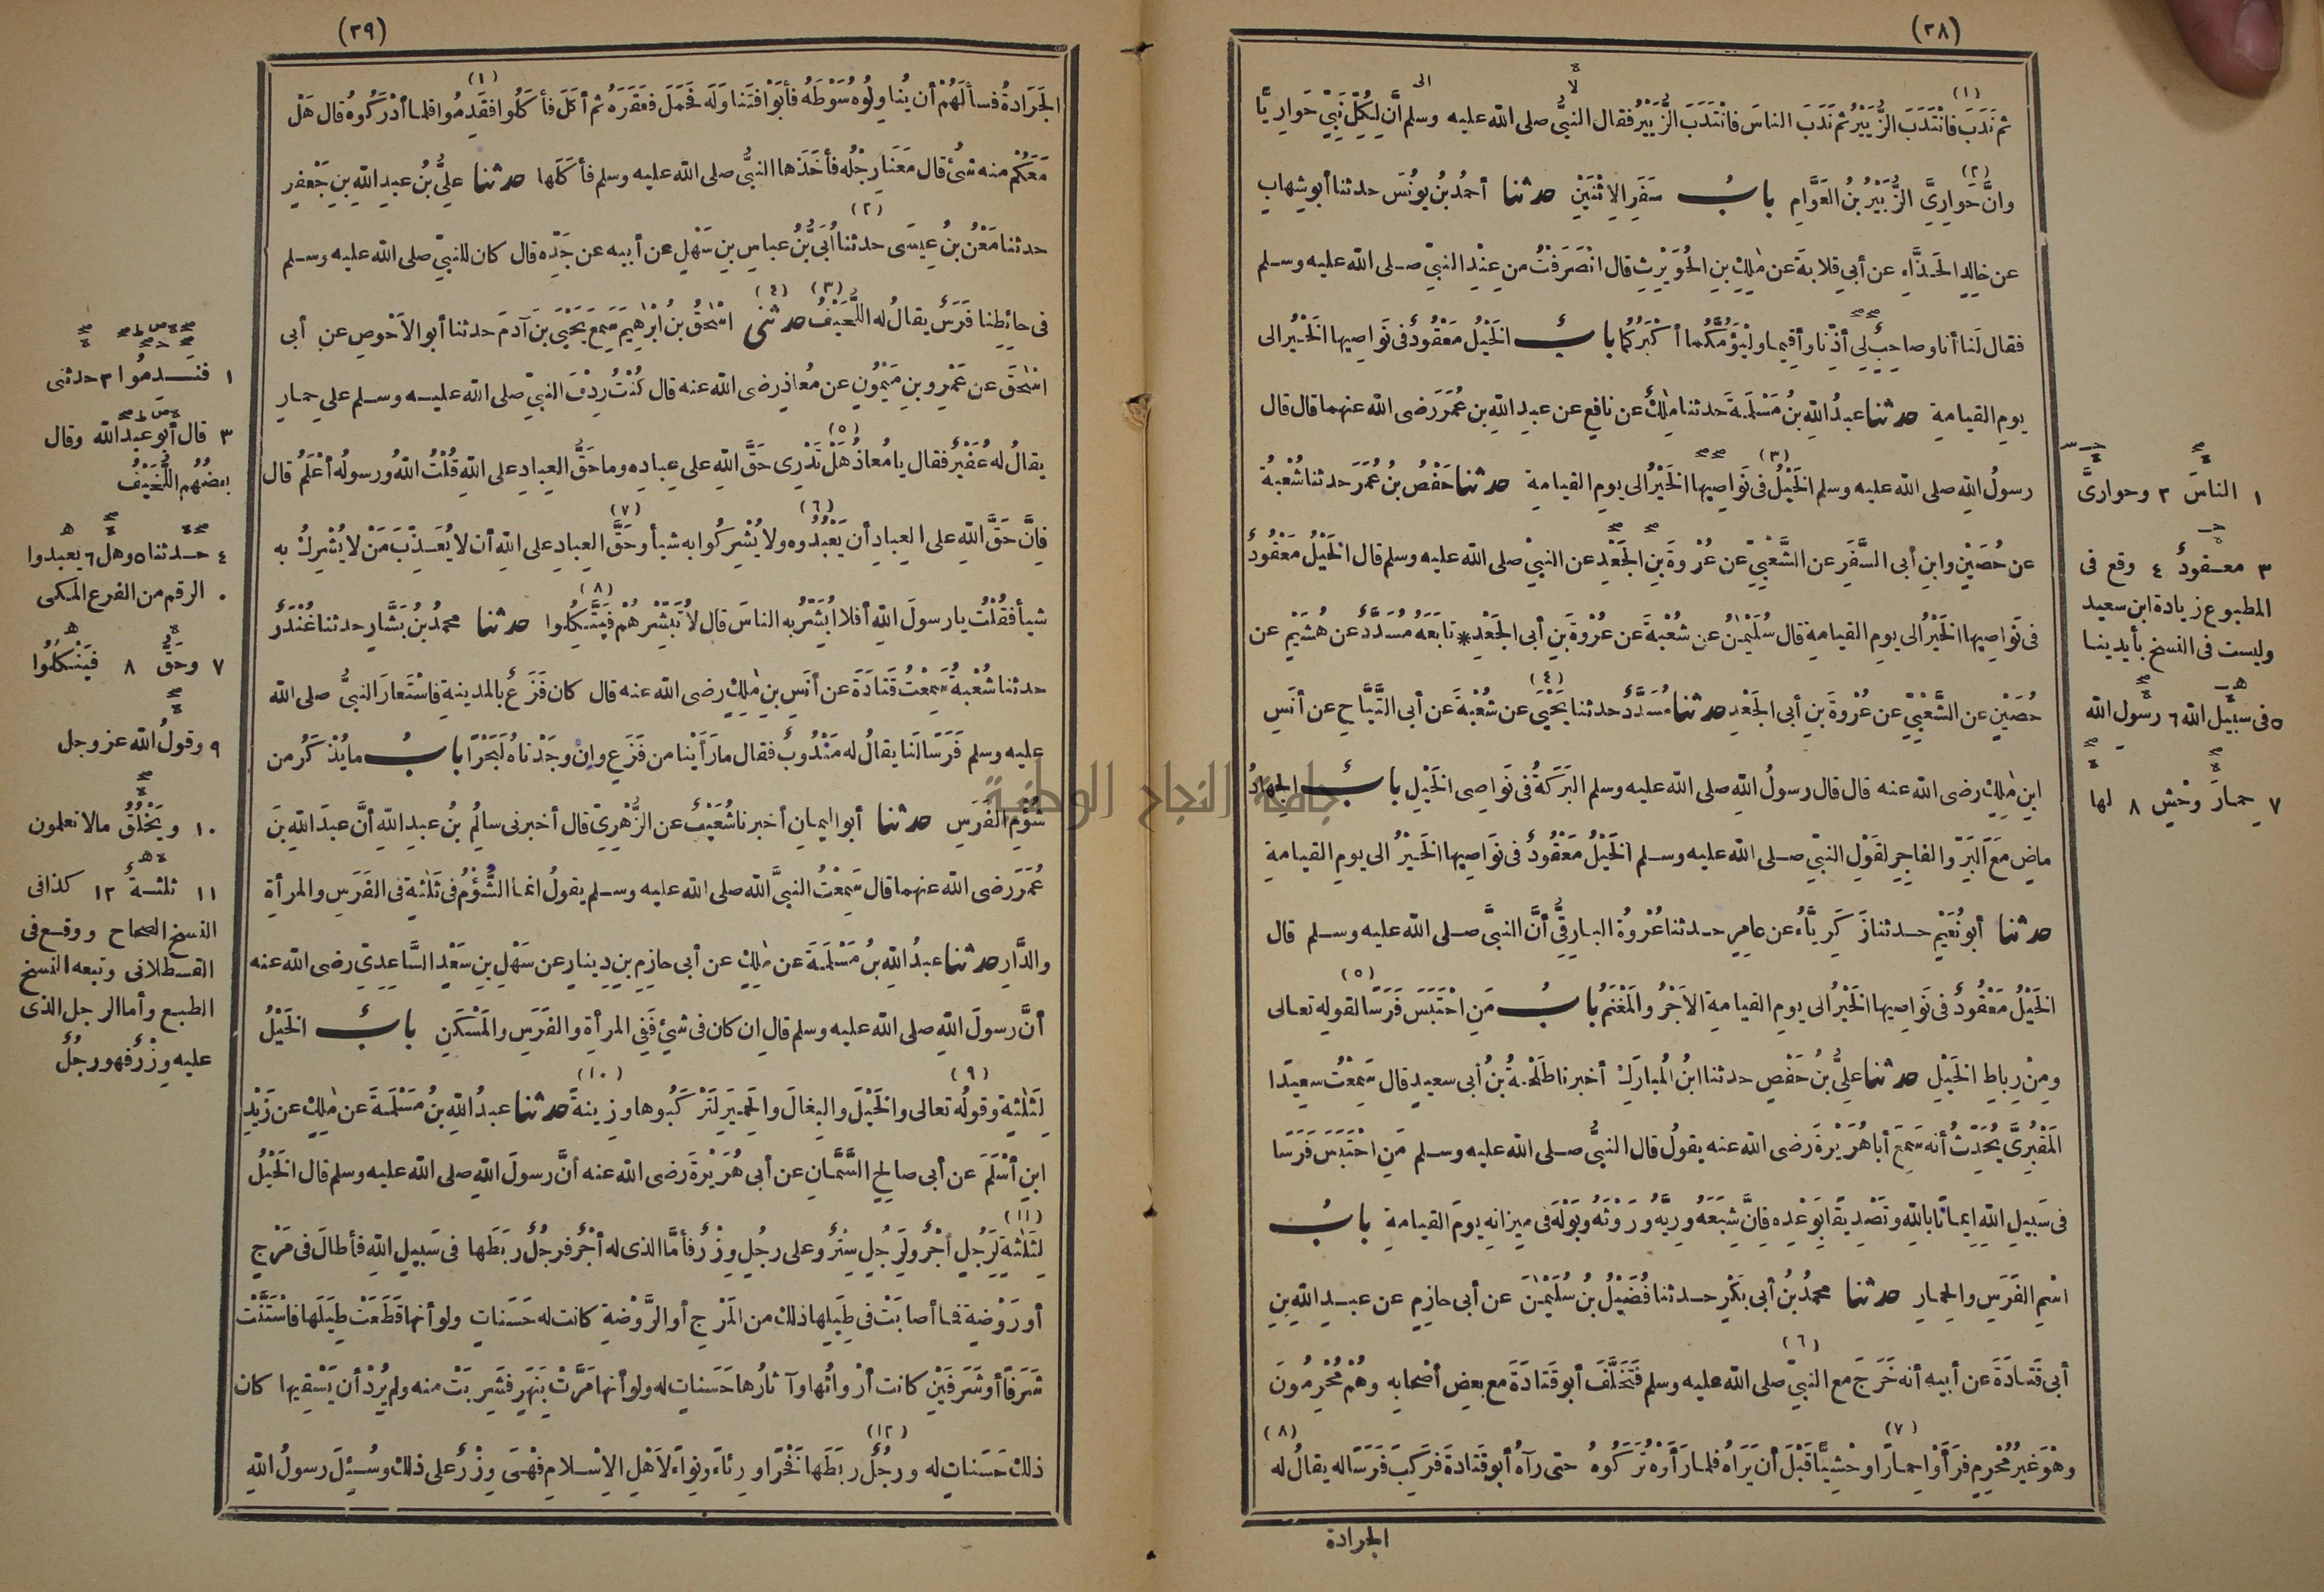 (٣٨)
ثم نَدَبَ فانْتَدَبَ الزُّبَيْرُ ثم نَدَبَ الناسَ فانْتَدَبَ الزُّبَيْرُ فقال النبيُّ صلى الله عليه وسلم انَّ لِكُلِّ نَبِيٍّ حَوارِيًّا
وانَّ حَوارِيَّ الزُّبَيْرُ بنُ العَوَّامِ بابُ سَفَرِ الاِثْنَيْنِ حدثنا أحمدُ بنُ يونُسَ حدثنا أبو شِهابٍ
عن خالِدٍ الحَذَّاءِ عن أبي قِلابةَ عن مٰلِكِ بنِ الحُوَيْرِثِ قال انْصَرَفْتُ من عِنْدِ النبيِّ صلى الله عليه وسلم
فقال لَنا أنا وصاحِبٌ لِي أذِّنا وأقِيما ولْيَؤُمَّكُما أكْبَرُكُما بابٌ الخَيْلُ مَعْقُودٌ فى نَوَاصِيها الخَيْرُ الى
يومِ القيامةِ حدثنا عبدُ اللهِ بنُ مَسْلَمَةَ حدثنا مٰلِكٌ عن نافِعٍ عن عبدِ اللهِ بنِ عُمَرَ رضى الله عنهما قال قال
رسولُ اللهِ صلى الله عليه وسلم الخَيْلُ فى نَوَاصِيها الخَيْرُ الى يومِ القيامةِ حدثنا حَفْصُ بنُ عُمَرَ حدثنا شُعْبةُ
عن حُصَيْنٍ وابنِ أبى السَّفَرِ عن الشَّعْبِيِّ عن عُرْوةَ بنِ الجَعْدِ عن النبيِّ صلى الله عليه وسلم قال الخَيْلُ مَعْقُودٌ
فى نَوَاصِيها الخَيْرُ الى يومِ القيامةِ قال سُلَيْمٰنُ عن شُعْبةَ عن عُرْوةَ بنِ أبى الجَعْدِ * تابَعَهُ مُسَدَّدٌ عن هُشَيْمٍ عن
حُصَيْنٍ عن الشَّعْبِيِّ عن عُرْوةَ بنِ أبى الجَعْدِ حدثنا مُسَدَّدٌ حدثنا يَحْيَى عن شُعْبةَ عن أبى التَّيَّاحِ عن أنَسِ
ابنِ مٰلِكٍ رضى الله عنه قال قال رسولُ اللهِ صلى الله عليه وسلم البَرَكةُ فى نَوَاصِى الخَيْلِ بابٌ الجِهادُ
ماضٍ مَعَ البَرِّ والفاجِرِ لقَوْلِ النبيِّ صلى الله عليه وسلم الخَيْلُ مَعْقُودٌ فى نَوَاصِيها الخَيْرُ الى يومِ القيامةِ
حدثنا أبو نُعَيْمٍ حدثنا زَكَرِيَّاءُ عن عامِرٍ حدثنا عُرْوةُ البارِقِيُّ أنَّ النبيَّ صلى الله عليه وسلم قال
الخَيْلُ مَعْقُودٌ فى نَوَاصِيها الخَيْرُ الى يومِ القيامةِ الاَجْرُ والمَغْنَمُ بابُ مَنِ احْتَبَسَ فَرَسًا لقوله تعالى
ومِنْ رِباطِ الخَيْلِ حدثنا علِيُّ بنُ حَفْصٍ حدثنا ابنُ المُبارَكِ أخبرنا طَلْحةُ بنُ أبى سعيدٍ قال سَمِعْتُ سعِيدًا
المَقْبُرِىَّ يُحَدِّثُ أنه سَمِعَ أبا هُرَيْرةَ رضى الله عنه يقولُ قال النبيُّ صلى الله عليه وسلم مَنِ احْتَبَسَ فَرَسًا
فى سَبيلِ اللهِ ايمانًا باللهِ وتَصْدِيقًا بِوَعْدِه فانَّ شِبَعَهُ ورِيَّهُ ورَوْثَهُ وبَوْلَه فى ميزانِه يومَ القيامةِ بابُ
اسْمِ الفَرَسِ والحِمارِ حدثنا محمدُ بنُ أبى بَكْرٍ حدثنا فُضَيْلُ بنُ سُلَيْمٰنَ عن أبى حازِمٍ عن عبدِ اللهِ بنِ
أبى قَتادَةَ عن أبيهِ أنه خَرَجَ مع النبيِّ صلى الله عليه وسلم فَتَخَلَّفَ أبو قَتادَةَ مع بعضِ أصْحابِهِ وهُمْ مُحْرِمُونَ
وهْوَ غَيْرُ مُحْرِمٍ فرَأَوْا حِمارًا وحْشِيًّا قَبْلَ أن يَرَاهُ فلما رَأَوْهُ تَرَكُوهُ حتى رآهُ أبو قَتادَةَ فرَكِبَ فَرَسًا له يقالُ له
الجرادة
١ الناسَ ٢ وحوارىَّ
٣ معقودٌ ٤ وقع فى
المطبوع زيادة ابن سعيد
وليست فى النسخ بأيدينا
٥ فى سبيل الله ٦ رسول الله
٧ حمارَ وحْشٍ ٨ لها
(٣٩)
الجَرَادةُ فسألَهُمْ أن يُناوِلُوه سَوْطَهُ فأبَوْا فتَناوَلَه فحَمَلَ فعَقَرَهُ ثم أكَلَ فأكَلُوا فقَدِمُوا فلما أدْرَكُوهُ قال هَلْ
مَعَكُمْ منه شىْءٌ قال مَعَنا رِجْلُه فأخَذَها النبيُّ صلى الله عليه وسلم فأكَلَها حدثنا علِيُّ بنُ عبدِ اللهِ بنِ جَعْفرٍ
حدثنا مَعْنُ بنُ عِيسَى حدثنا أُبَيُّ بنُ عباسِ بنِ سَهْلٍ عن أبيه عن جَدِّه قال كان للنبيِّ صلى الله عليه وسلم
فى حائِطِنا فَرَسٌ يقالُ له اللُّحَيْفُ حدثنى اسْحٰقُ بنُ ابْرٰهِيمَ سَمِعَ يَحْيَى بنَ آدمَ حدثنا أبو الاَحْوصِ عن أبى
اسْحٰقَ عن عَمْرِو بنِ مَيْمُونٍ عن مُعاذٍ رضى الله عنه قال كُنْتُ رِدْفَ النبيِّ صلى الله عليه وسلم على حمارٍ
يقالُ له عُفَيْرٌ فقال يا مُعاذُ هَلْ تَدْرِى حَقَّ اللهِ على عِبادِه وما حَقُّ العِبادِ على اللهِ قُلْتُ اللهُ ورسولُه أعْلَمُ قال
فانَّ حَقَّ اللهِ على العِبادِ أن يَعْبُدُوه ولا يُشْرِكُوا به شيأ وحَقَّ العِبادِ على اللهِ أن لا يُعَذِّبَ مَنْ لا يُشْرِكُ به
شيأ فقُلْتُ يا رسولَ اللهِ أفلا أُبَشِّرُ به الناسَ قال لا تُبَشِّرْهُمْ فيَتَّكِلُوا حدثنا محمدُ بنُ بَشَّارٍ حدثنا غُنْدَرٌ
حدثنا شُعْبةُ سَمِعْتُ قَتادَةَ عن أنَسِ بنِ مٰلِكٍ رضى الله عنه قال كان فَزَعٌ بالمدينةِ فاسْتَعارَ النبيُّ صلى الله
عليه وسلم فَرَسًا لَنا يقالُ له مَنْدُوبٌ فقال ما رَأَيْنا من فَزَعٍ وانْ وجَدْناهُ لَبَحْرًا بابُ ما يُذْكَرُ من
شُؤْمِ الفَرَسِ حدثنا أبو اليمانِ أخبرنا شُعَيْبٌ عن الزُّهْرِىِّ قال أخبرنى سالِمُ بنُ عبدِ اللهِ أنَّ عبدَ اللهِ بنَ
عُمَرَ رضى الله عنهما قال سَمِعْتُ النبيَّ الله صلى الله عليه وسلم يقولُ انما الشُّؤْمُ فى ثَلٰثةٍ فى الفَرَسِ والمرأةِ
والدَّارِ حدثنا عبدُ اللهِ بنُ مَسْلَمَةَ عن مٰلِكٍ عن أبى حازِمِ بنِ دِينارٍ عن سَهْلِ بنِ سَعْدٍ السَّاعِدِىِّ رضى الله عنه
أنَّ رسولَ اللهِ صلى الله عليه وسلم قال ان كان فى شىْءٍ فَفِى المرأةِ والفَرَسِ والمَسْكَنِ بابٌ الخَيْلُ
لِثَلٰثةٍ وقولُه تعالى والخَيْلَ والبِغالَ والحَميرَ لِتَرْكَبُوها وزِينةً حدثنا عبدُ اللهِ بنُ مَسْلَمَةَ عن مٰلِكٍ عن زَيْدِ
ابنِ أسْلَمَ عن أبى صالِحٍ السَّمَّانِ عن أبى هُرَيْرةَ رضى الله عنه أنَّ رسولَ اللهِ صلى الله عليه وسلم قال الخَيْلُ
لِثَلٰثةٍ لِرَجُلٍ أجْرٌ ولِرَجُلٍ سِتْرٌ وعلى رجُلٍ وِزْرٌ فأمَّا الذى له أجْرٌ فرجُلٌ ربَطَها فى سَبيلِ اللهِ فأطالَ فى مَرْجٍ
أو رَوْضةٍ فما أصابَتْ فى طِيَلِها ذلك من المَرْجِ أو الرَّوْضةِ كانت له حَسَناتٍ ولو أنها قَطَعَتْ طِيَلَها فاسْتَنَّتْ
شَرَفًا أو شَرَفَيْنِ كانت أرْواثُها وآثارُها حَسَناتٍ له ولو أنها مَرَّتْ بِنَهَرٍ فشَرِبَتْ منه ولم يُرِدْ أن يَسْقِيها كان
ذلك حَسَناتٍ له ورجُلٌ ربَطَها فَخْرًا ورِئاءً ونِواءً لاَهْلِ الاِسْلامِ فهْىَ وِزْرٌ على ذلك وسُئِلَ رسولُ اللهِ
١ فندموا ٢ حدثنى
٣ قال أبو عبد الله وقال
بعضُهُم اللُّخَيْفُ
٤ حدثنا ٥ وهل ٦ يعبدوا
. الرقم من الفرع المكى
٧ وحَقُّ ٨ فيَنْكُلُوا
٩ وقولُ الله عز وجل
١٠ ويَخْلُقُ مالا تعلمون
١١ ثلثةٌ ١٢ كذا فى
النسخ الصحاح ووقع فى
القسطلانى وتبعه النسخ
الطبع وأما الرجل الذى
عليه وِزْرٌ فهو رجُلٌ
جامعة النجاح الوطنية